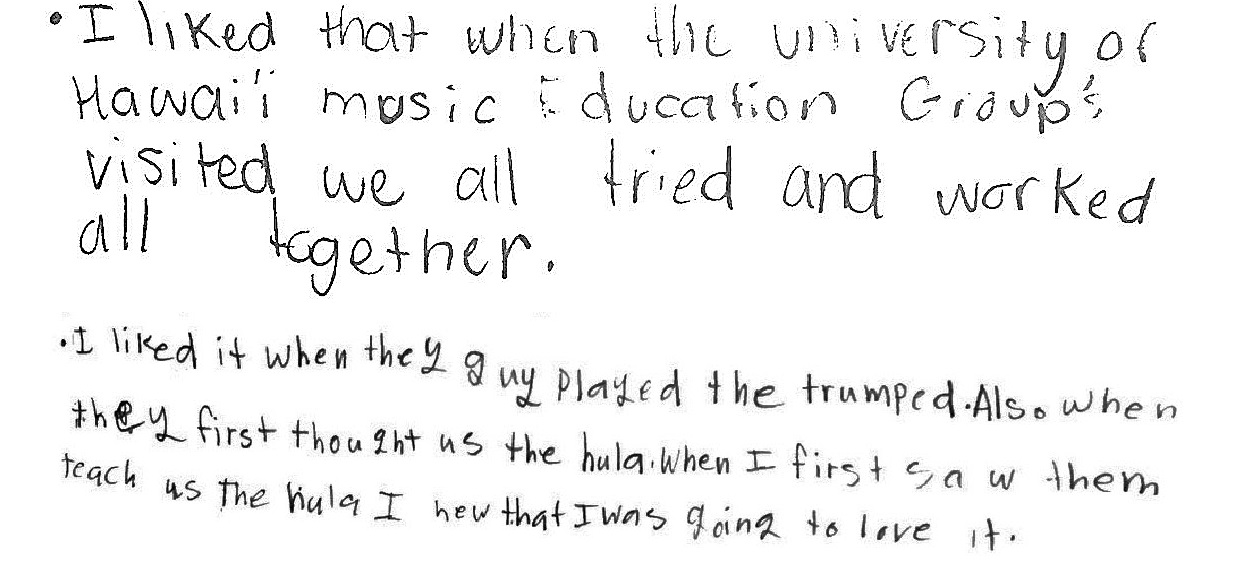 • I liked that when the university of
Hawai'i music Education Group's
visited we all tried and worked
all together.
• I liked it when they guy played the trumped. Also when
they first thought us the hula. When I first saw them
teach us The hula I new that I was going to love it.